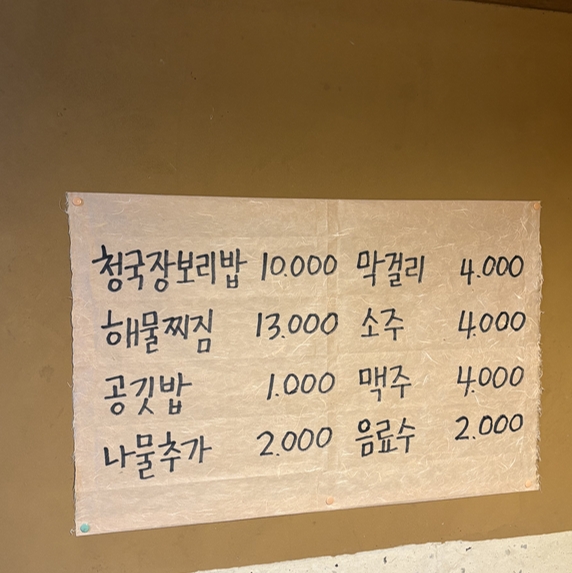 청국장보리밥 10.000 막걸리 4.000
해물찌짐 13.000 소주 4.000
공깃밥 1.000 맥주 4.000
나물추가 2.000 음료수 2.000